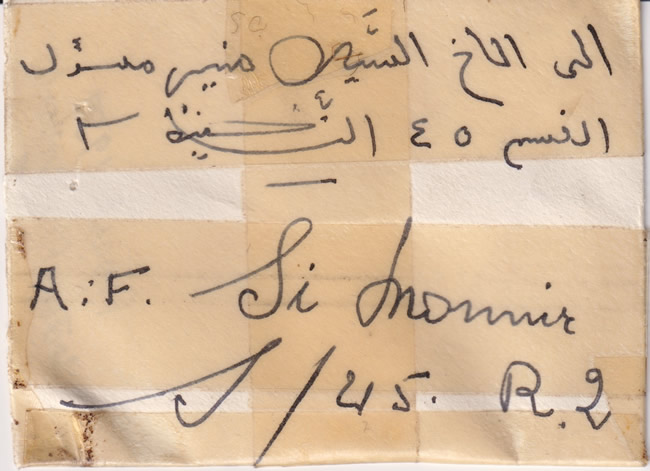 الى الاخ السيد منير مسؤل
القسم ٤٥ الناحية ٢
A.F. Si Mounir
S/45. R.2